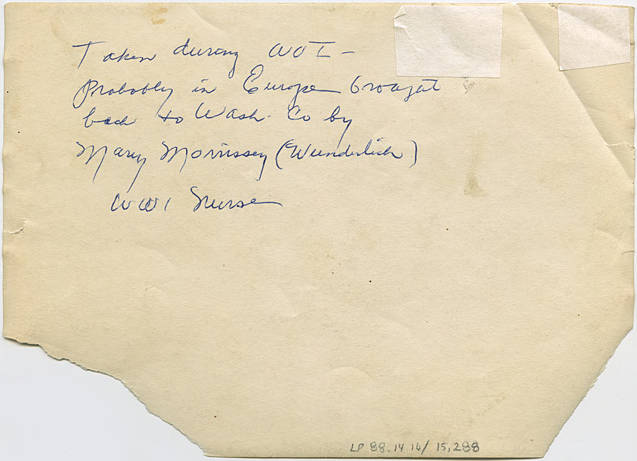 Taken during WWI –
Probably in Europe brought
back to Wash. Co by
Mary Morrissey (Wunderlich)
WW1 Nurse
LP 88.14 16/15,288